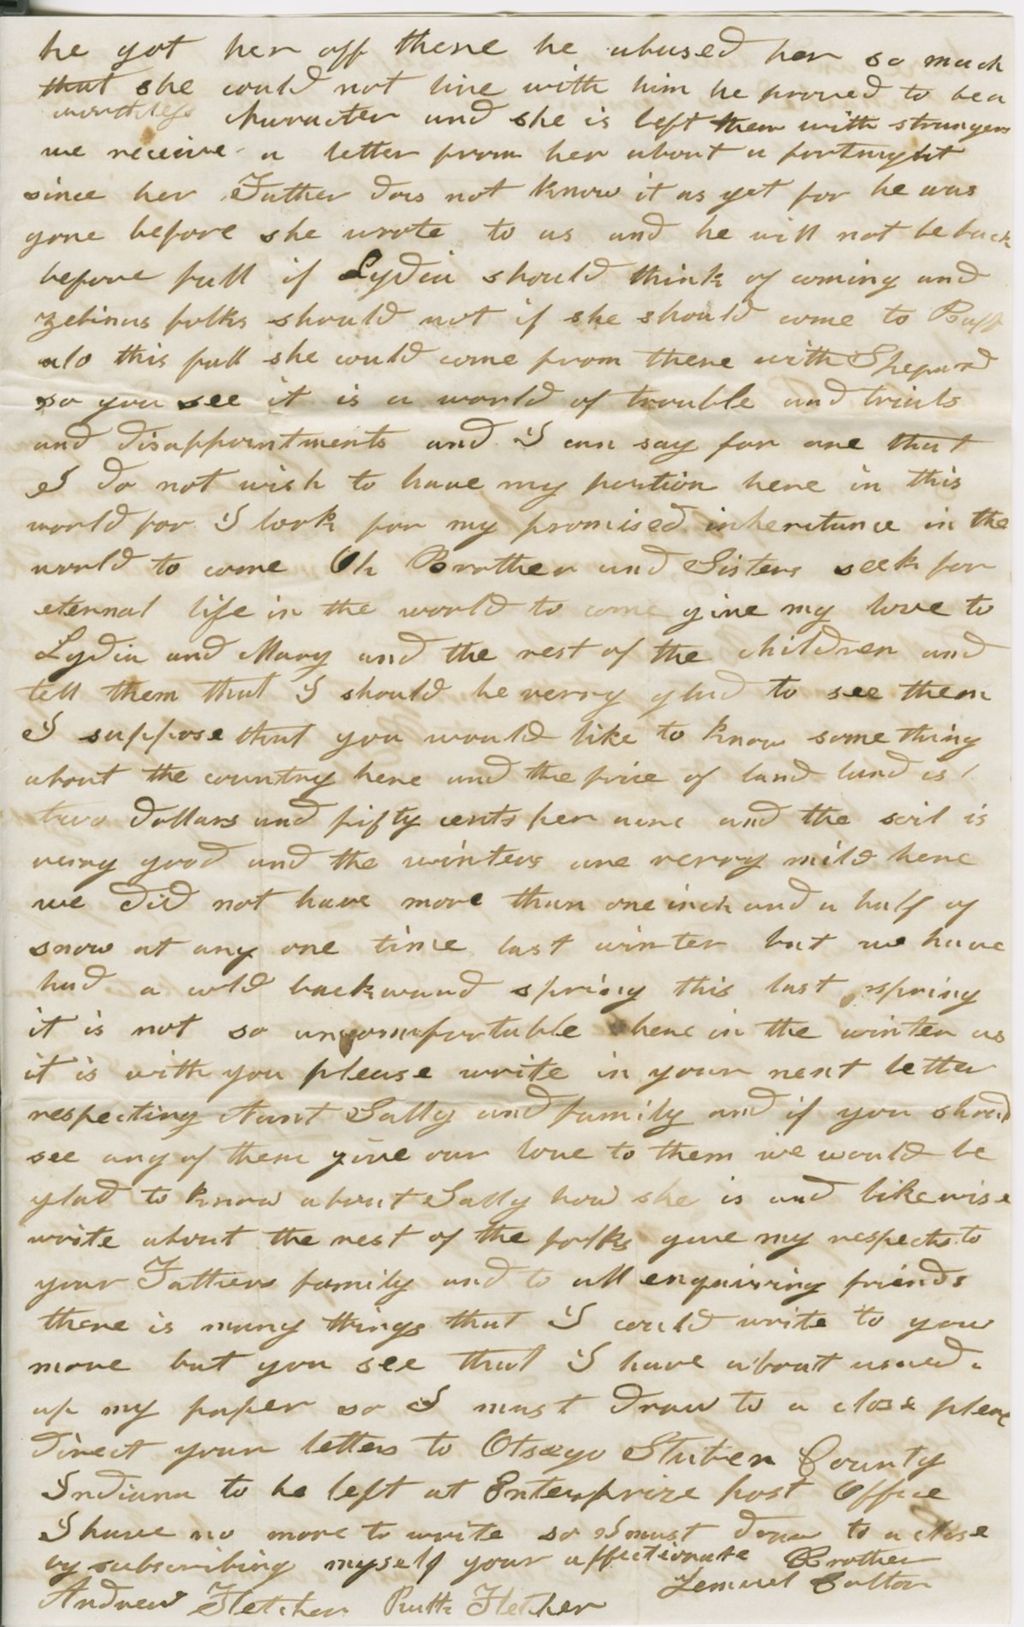 he got her off there he abused her so much
that she could not live with him he proved to be a
worthless character and she is left them with strangers
we receive a letter from her about a fortnight
since her Father dos not know it as yet for he was
gone before she wrote to us and he will not be back
before fall if Lydia should think of coming and
zebinas folks should not if she should come to Buff
alo this fall she could come from there with Shepard
so you see it is a world of trouble and trials
and disappointments and I can say for one that
I do not wish to have my portion here in this
world for I look for my promised inheritance in the
world to come Oh Brother and Sisters seek for
eternal life in the world to come give my love to
Lydia and Mary and the rest of the children and
tell them that I should be verry glad to see them
I suppose that you would like to know some thing
about the country here and the price of land land is
two dollars and fifty cents per acre and the soil is
verry good and the winters are verry mild here
we did not have more than one inch and a half of
snow at any one time last winter but we have
had a cold backward spring this last spring
it is not so uncomfortable here in the winter as
it is with you please write in your next letter
respecting Aunt Sally and family and if you should
see any of them give our love to them we would be
glad to know about Sally how she is and likewise
write about the rest of the folks give my respects to
your Fathers family and to all enquiring friends
there is many things that I could write to you
more but you see that I have about used
up my paper so I must draw to a close please
direct your letters to Otsego Stuben County
Indiana to be left at Enterprize post Office
I have no more to write so I must draw to a close
by subscribing myself your affectionate Brother
Lemuel Bolton
Andrew Fletcher Ruth Fletcher